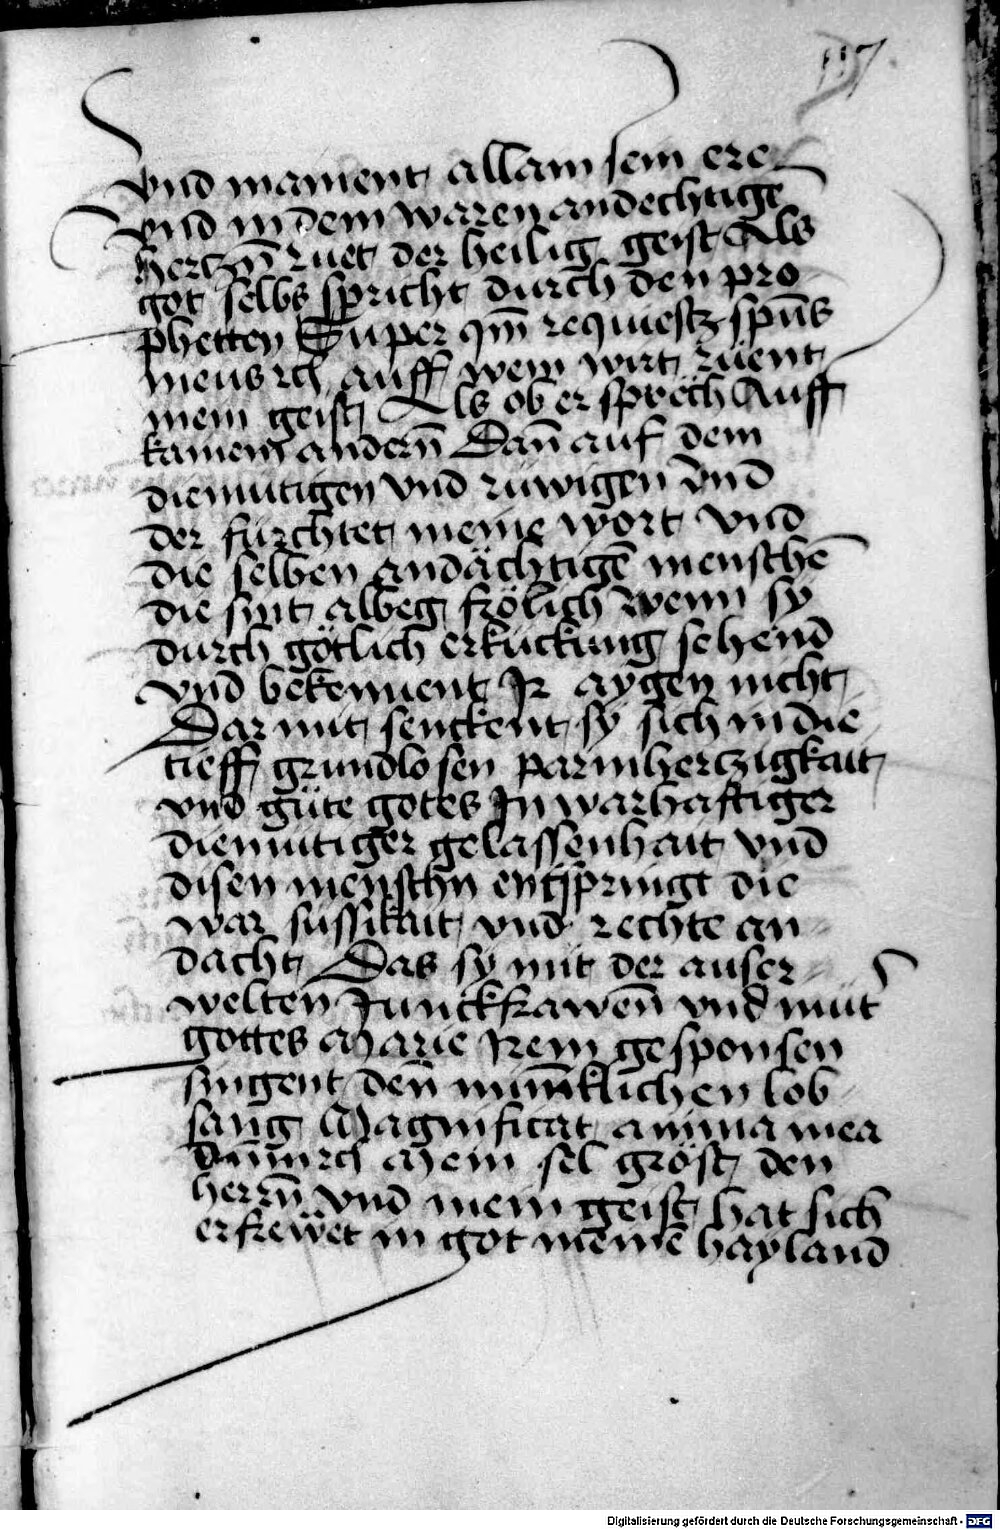 117
vnd mainent allain sein ere
vnd in dem waren andechtigē
hertzn̄ ruet der heilig geist Als
got selbs spricht durch den pro
phetten Super qm̄ requiescz spūs
meus rc̄ auff wem wirt rüent
mein geist Als ob er sprech Auff
kainem andern̄ Dan̄ auf dem
diemutigen vnd rüwigen vnd
der fürchtet meine wort vnd
die selben andächtigē menschē
die sint albeg frölich wenn sy
durch götlich erkuckung sehend
vnd bekennent Ir aygen nicht
Dar mit senckent sy sich in die
tieff grundlosen parmhertzigkait
vnd güte gotes In warhaftiger
diemutiger gelassenhait vnd
disen menschn entspringt die
war süssikait vnd rechte an
dacht Das sy mit der auser
welten Junckfrawen̄ vnd müt̄
gottes Marie Irem gesponsen
singent den̄ min̄iklichen lob
sang Magnificat anima mea
dn̄m rc̄ Mein sel gröst den
herrn̄ vnd mein geist hat sich
erfrewet in got meinē hayland
Digitalisierung gefördert durch die Deutsche Forschungsgemeinschaft - DFG